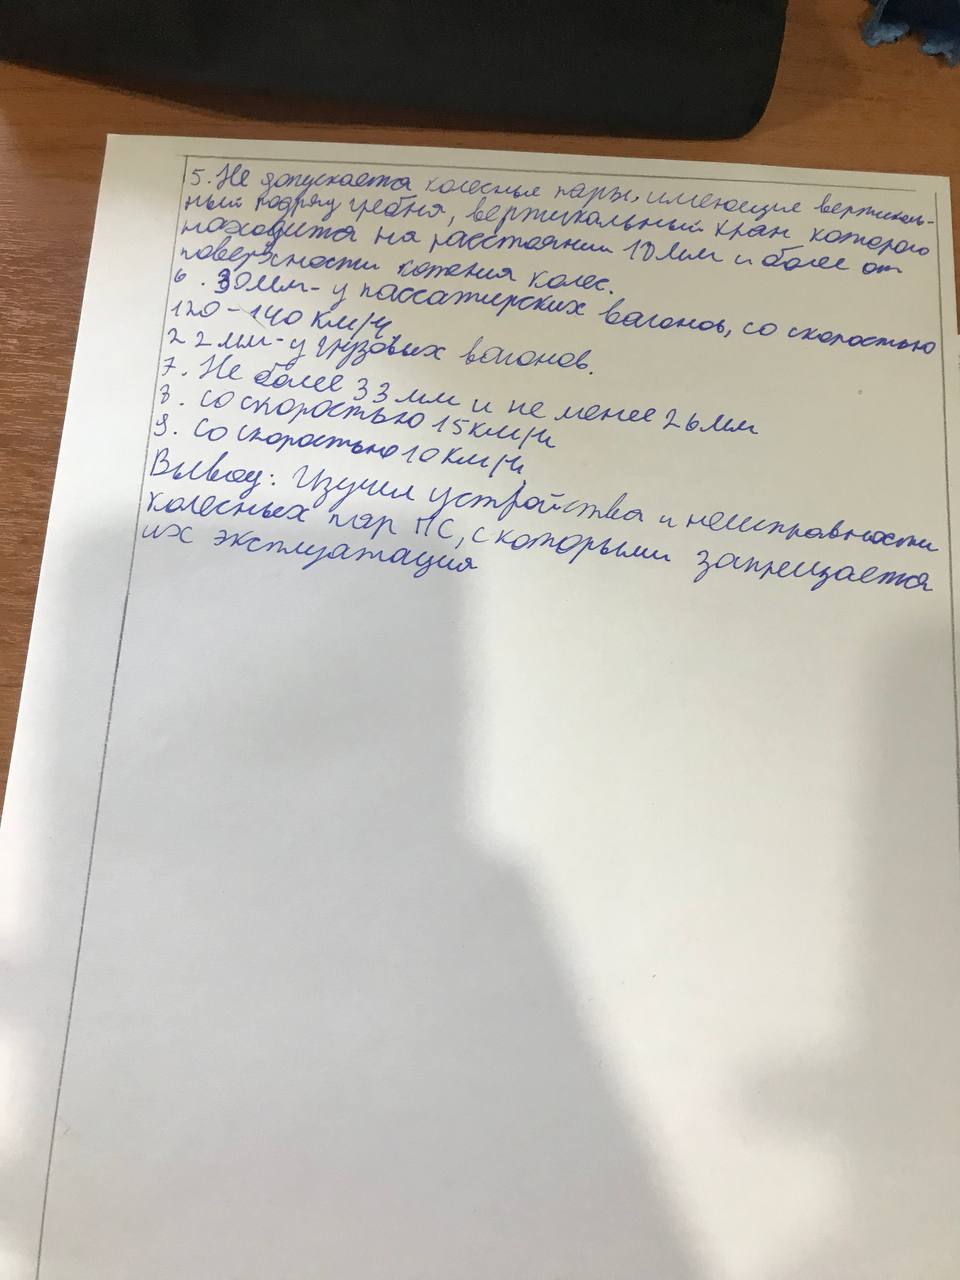 5. Не допускается колесные пары, имеющие вертикаль-
ный подрез гребня, вертикальный кран которого
находится на расстоянии 18мм и более от
поверхности катения колес.
6. 30мм - у пассажирских вагонов, со скоростью
120-140 км/ч
22мм - у грузовых вагонов.
7. Не более 33мм и не менее 26мм
8. со скоростью 15км/ч
9. Со скоростью 10 км/ч
Вывод: Изучил устройства и неисправности
колесных пар ПС, с которыми запрещается
их эксплуатация